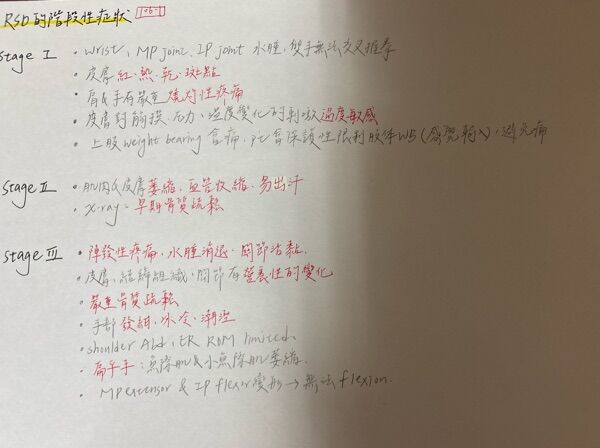 RSD的階段性症狀 106-1
Stage I
・wrist、MP joint、IP joint 水腫,雙手無法交叉握拳
・皮膚紅、熱、乾、斑點
・肩&手有嚴重燒灼性疼痛
・皮膚對觸摸、壓力、溫度變化的刺激過度敏感
・上肢weight bearing會痛,pt會保護性限制肢体WB(感覺輸入),避免痛
Stage II
・肌肉&皮膚萎縮、血管收縮、易出汗
・x-ray:早期骨質疏鬆
Stage III
・陣發性疼痛、水腫消退、關節沾黏、
・皮膚、結締組織、關節有營養性的變化
・嚴重骨質疏鬆
・手部發紺、冰冷、潮溼
・shoulder Abd、ER ROM limited.
・扁平手:魚際肌&小魚際肌萎縮.
・MP extensor & IP flexor變形→無法flexion.